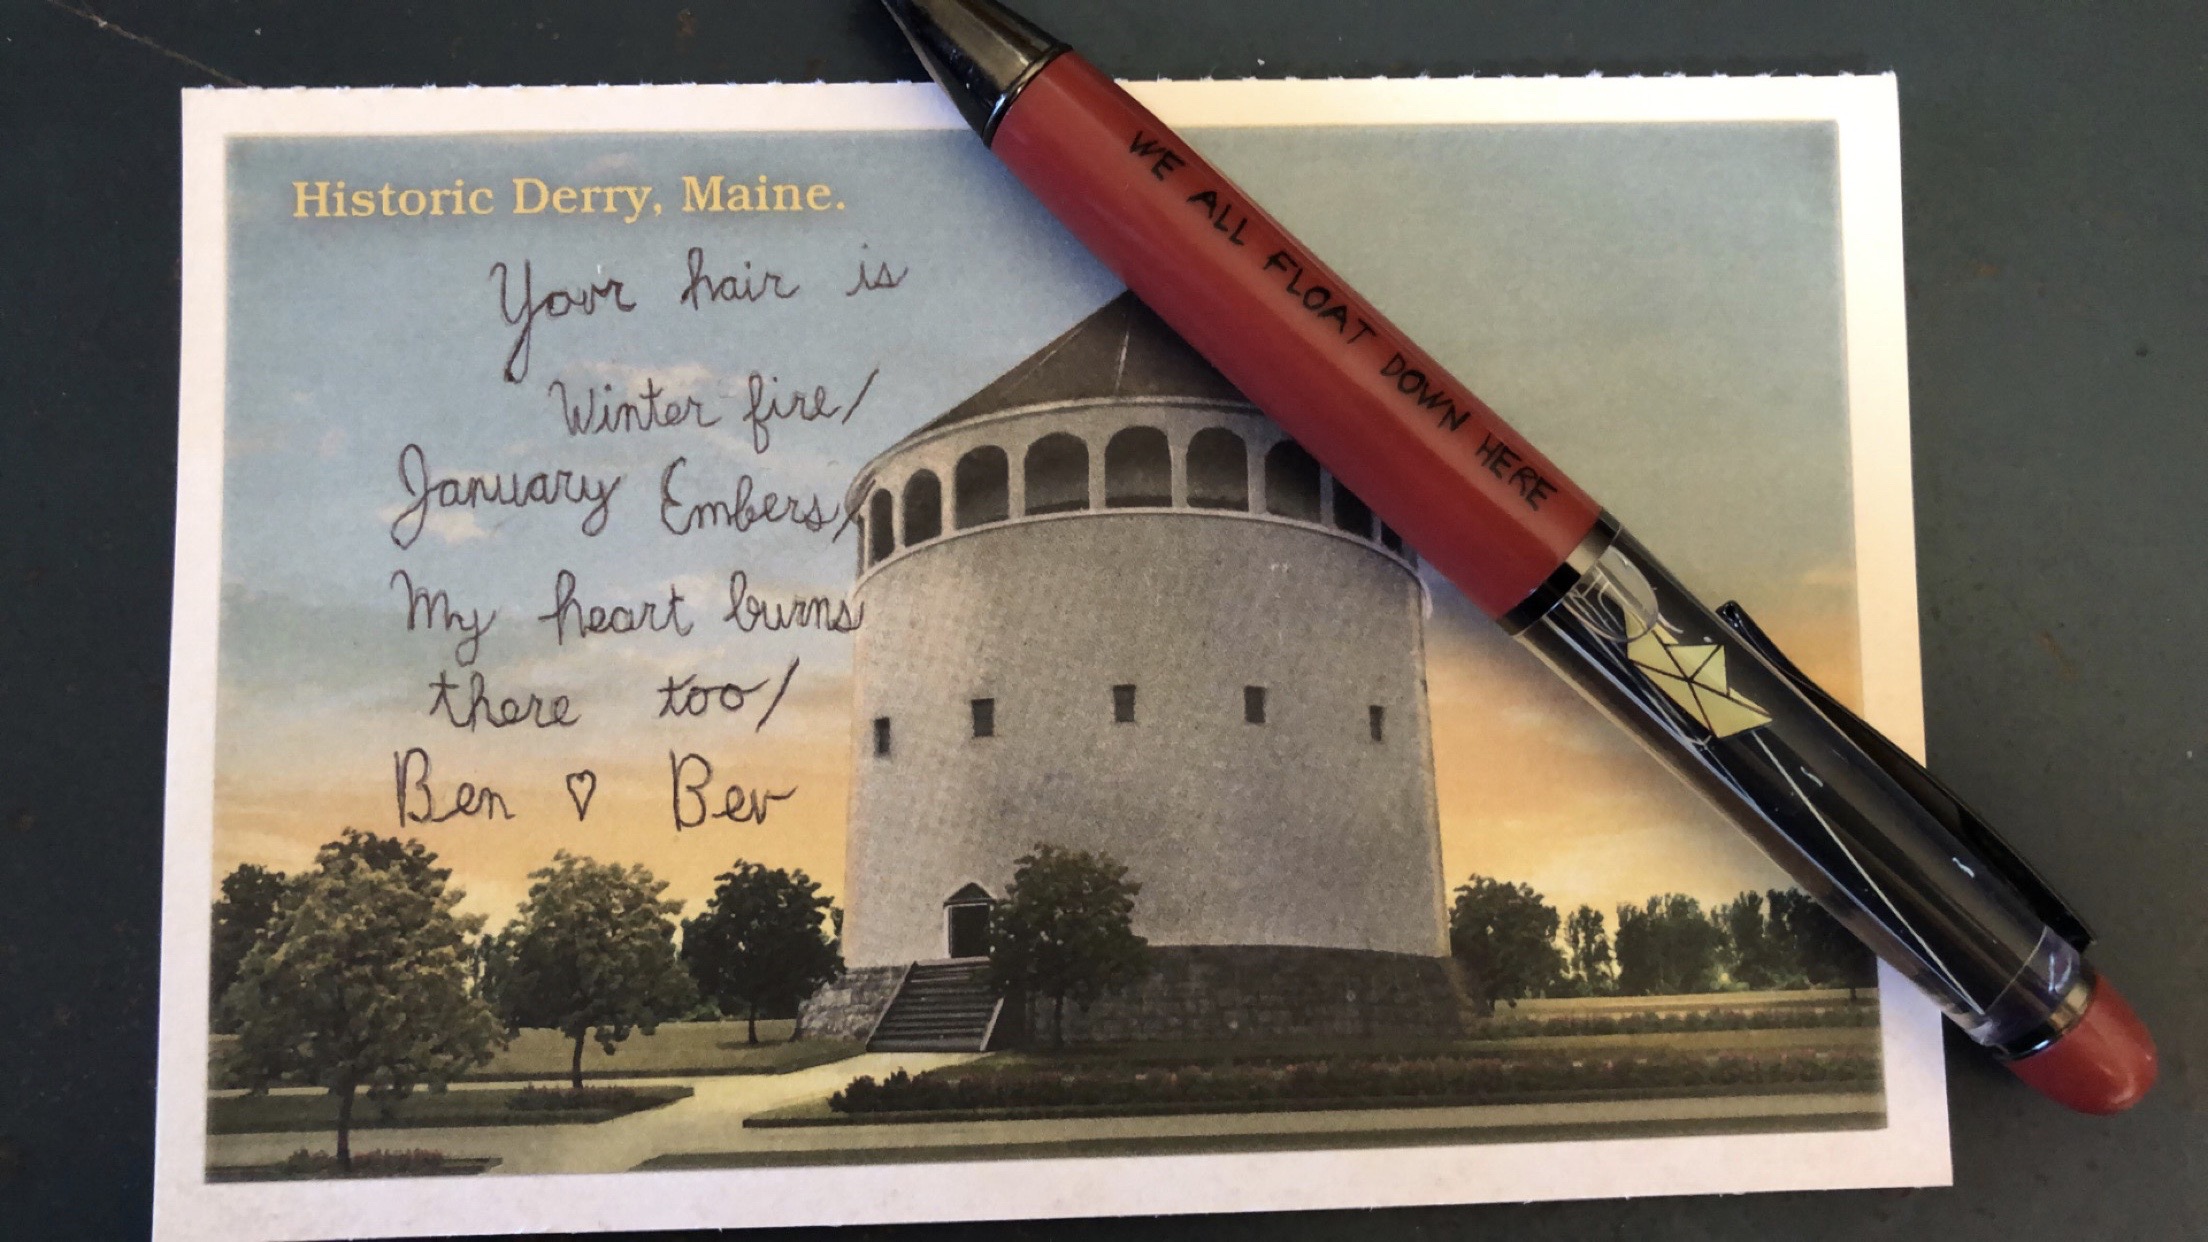 Historic Derry, Maine.
Your hair is
Winter fire/
January Embers/
My heart burns
there too/
Ben ♡ Bev
WE ALL FLOAT DOWN HERE